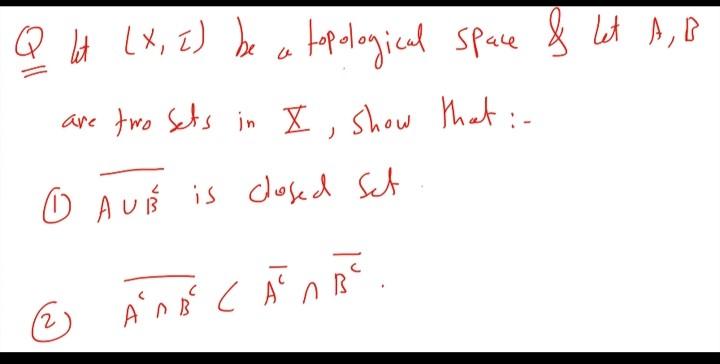 Q let (X, τ) be a topological space & let A, B
are two sets in X, show that :-
① \overline{A ∪ B^c} is closed set.
② \overline{A^c ∩ B^c} ⊂ \overline{A^c} ∩ \overline{B^c}.